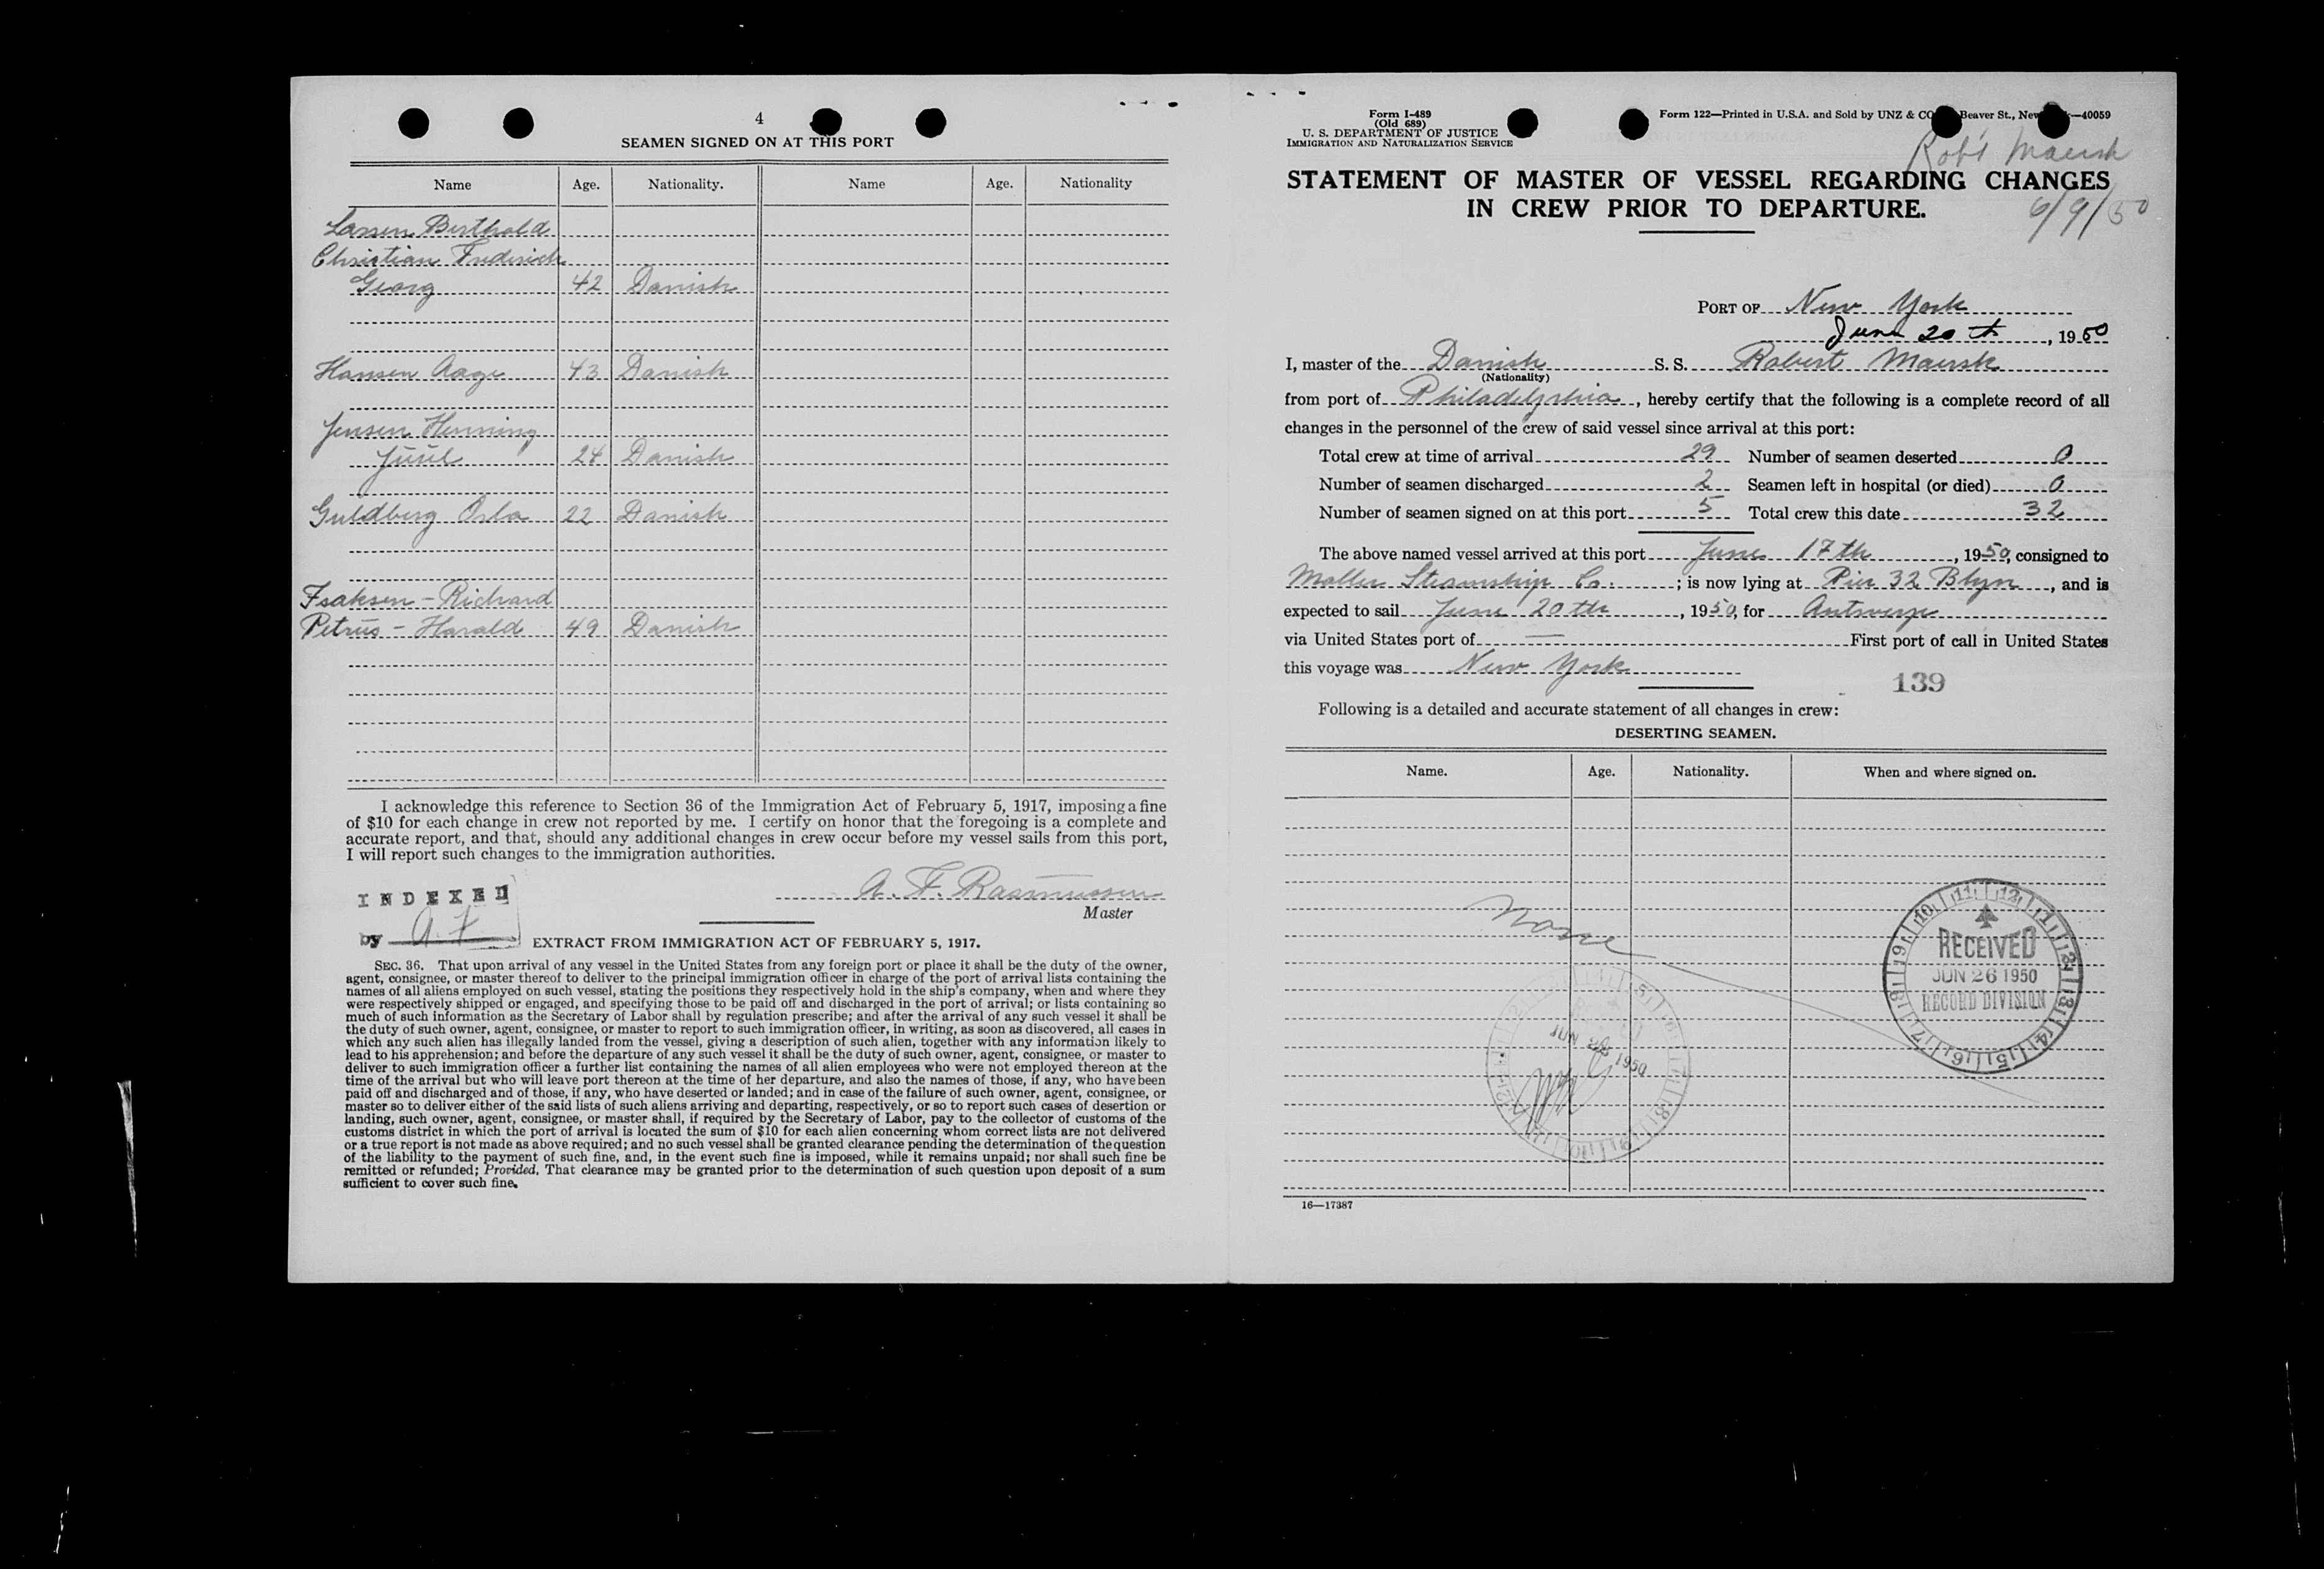 4
SEAMEN SIGNED ON AT THIS PORT
Name Age. Nationality. Name Age. Nationality
Larsen Berthold
Christian Frederick
Georg 42 Danish
Hansen Aage 43 Danish
Jensen Henning
Juul 24 Danish
Guldberg Orla 22 Danish
Isaksen - Richard
Petrus - Harald 49 Danish
I acknowledge this reference to Section 36 of the Immigration Act of February 5, 1917, imposing a fine
of $10 for each change in crew not reported by me. I certify on honor that the foregoing is a complete and
accurate report, and that, should any additional changes in crew occur before my vessel sails from this port,
I will report such changes to the immigration authorities.
A. F. Rasmussen
Master
INDEXED
by A.F.
EXTRACT FROM IMMIGRATION ACT OF FEBRUARY 5, 1917.
SEC. 36. That upon arrival of any vessel in the United States from any foreign port or place it shall be the duty of the owner,
agent, consignee, or master thereof to deliver to the principal immigration officer in charge of the port of arrival lists containing the
names of all aliens employed on such vessel, stating the positions they respectively hold in the ship's company, when and where they
were respectively shipped or engaged, and specifying those to be paid off and discharged in the port of arrival; or lists containing so
much of such information as the Secretary of Labor shall by regulation prescribe; and after the arrival of any such vessel it shall be
the duty of such owner, agent, consignee, or master to report to such immigration officer, in writing, as soon as discovered, all cases in
which any such alien has illegally landed from the vessel, giving a description of such alien, together with any information likely to
lead to his apprehension; and before the departure of any such vessel it shall be the duty of such owner, agent, consignee, or master to
deliver to such immigration officer a further list containing the names of all alien employees who were not employed thereon at the
time of the arrival but who will leave port thereon at the time of her departure, and also the names of those, if any, who have been
paid off and discharged and of those, if any, who have deserted or landed; and in case of the failure of such owner, agent, consignee, or
master so to deliver either of the said lists of such aliens arriving and departing, respectively, or so to report such cases of desertion or
landing, such owner, agent, consignee, or master shall, if required by the Secretary of Labor, pay to the collector of customs of the
customs district in which the port of arrival is located the sum of $10 for each alien concerning whom correct lists are not delivered
or a true report is not made as above required; and no such vessel shall be granted clearance pending the determination of the question
of the liability to the payment of such fine, and, in the event such fine is imposed, while it remains unpaid; nor shall such fine be
remitted or refunded; Provided, That clearance may be granted prior to the determination of such question upon deposit of a sum
sufficient to cover such fine.
Form I-489
(Old 689)
U. S. DEPARTMENT OF JUSTICE
IMMIGRATION AND NATURALIZATION SERVICE
Form 122—Printed in U.S.A. and Sold by UNZ & CO Beaver St., New —40059
Rob't Maersk
STATEMENT OF MASTER OF VESSEL REGARDING CHANGES
IN CREW PRIOR TO DEPARTURE.
6/9/50
PORT OF New York
June 20th, 1950
I, master of the Danish S. S. Robert Maersk
(Nationality)
from port of Philadelphia, hereby certify that the following is a complete record of all
changes in the personnel of the crew of said vessel since arrival at this port:
Total crew at time of arrival 29 Number of seamen deserted 0
Number of seamen discharged 2 Seamen left in hospital (or died) 0
Number of seamen signed on at this port 5 Total crew this date 32
The above named vessel arrived at this port June 17th, 1950, consigned to
Moller Steamship Co.; is now lying at Pier 32 Blyn, and is
expected to sail June 20th, 1950, for Antwerp
via United States port of — First port of call in United States
this voyage was New York
139
Following is a detailed and accurate statement of all changes in crew:
DESERTING SEAMEN.
Name. Age. Nationality. When and where signed on.
None
RECEIVED
JUN 26 1950
RECORD DIVISION
JUN 26 1950
16—17387